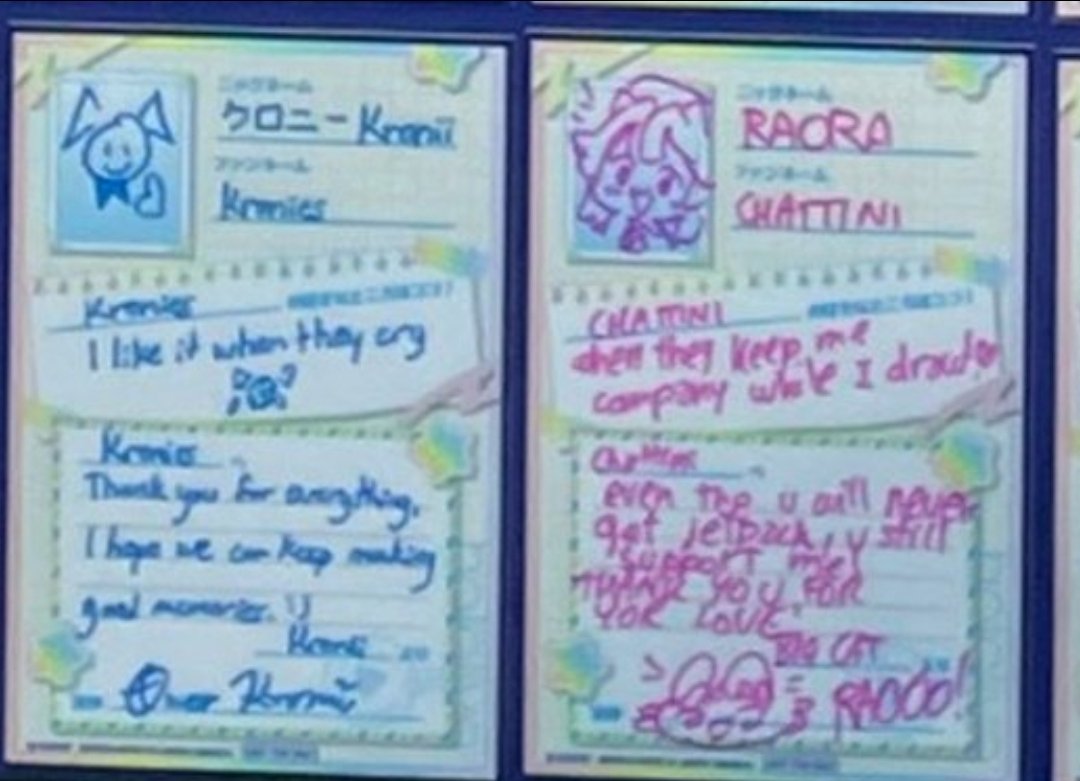 ニックネーム
クロニー Kronii
ファンネーム
Kronies
Kronies
I like it when they cry
Kronies
Thank you for everything,
I hope we can keep making
good memories. :)
Kronii
Ouro Kronii
ニックネーム
RAORA
ファンネーム
CHATTINI
CHATTINI
when they keep me
company while I draw!
Chattini
even tho u will never
get jetpack, u still
support me!
THANK YOU FOR
YOR LOVE
BIG CAT
RAOOO!